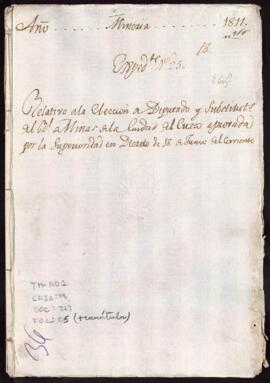 Año Mineria 1811.
18.
Expedte Nº 25.
Relativo ala Eleccion a Diputado y Substituto
del a Minas de la Ciudad del Cuzco aprovada
por la Superioridad en Decreto de 18 de Junio del Corriente
CAJA:
DOC: 323
FOLIOS 5 (+ carátula)
36